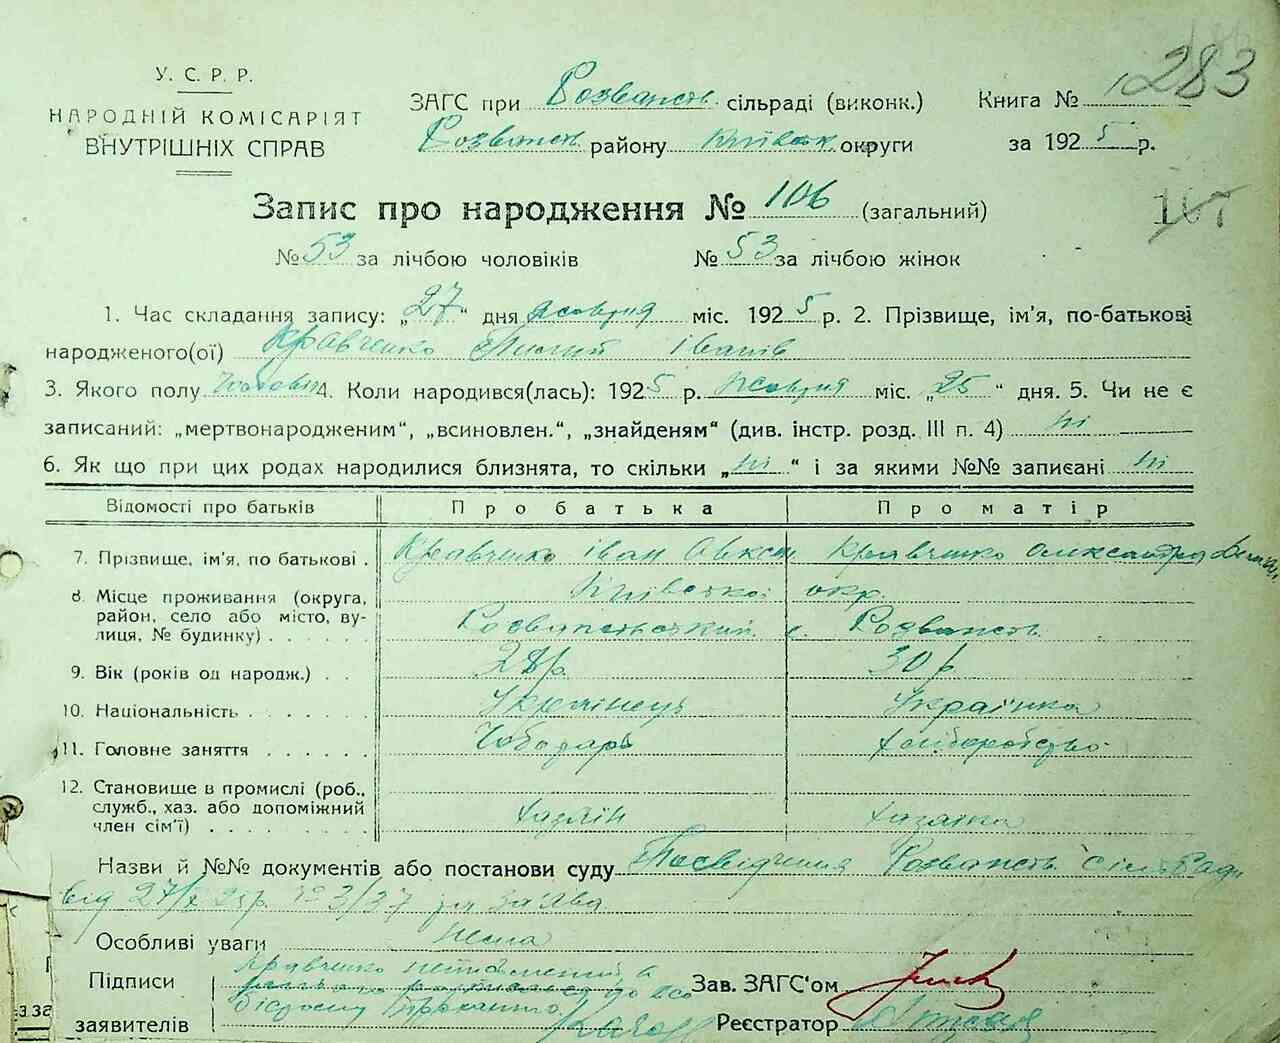 283
У. С. Р. Р.
НАРОДНІЙ КОМІСАРІЯТ
ВНУТРІШНІХ СПРАВ
ЗАГС при Розважів. сільраді (виконк.) Книга №
Розважів району Київськ округи за 1925 р.
Запис про народження № 106 (загальний)
107
№ 53 за лічбою чоловіків № 53 за лічбою жінок
1. Час складання запису: „27“ дня жовтня міс. 1925 р. 2. Прізвище, ім'я, по-батькові
народженого(ої) Кравченко Іванів
3. Якого полу 4. Коли народився(лась): 1925 р. жовтня міс. „25“ дня. 5. Чи не є
записаний: „мертвонародженим“, „всиновлен.“, „знайденям“ (див. інстр. розд. III п. 4) ні
6. Як що при цих родах народилися близнята, то скільки „ні“ і за якими №№ записані ні
Відомості про батьків Про батька Про матір
7. Прізвище, ім'я, по батькові . Кравченко Іван Кравченко Олександра
8. Місце проживання (округа, Київської окр.
район, село або місто, ву-
лиця, № будинку) . . . . . с. Розважів
9. Вік (років од народж.) . . 28 р. 30 р
10. Національність . . . . . . Українець Українка
11. Головне заняття . . . . . Чоботарь хліборобство
12. Становище в промислі (роб.,
служб., хаз. або допоміжний
член сім'ї) . . . . . . . . хазяїн хазяїка
Назви й №№ документів або постанови суду Посвідчення Розважів сільради
від 27/X 25 р. № 3/37 заява
Особливі уваги нема
Підписи Кравченко неписьменний
заявителів
Зав. ЗАГС'ом
Реєстратор